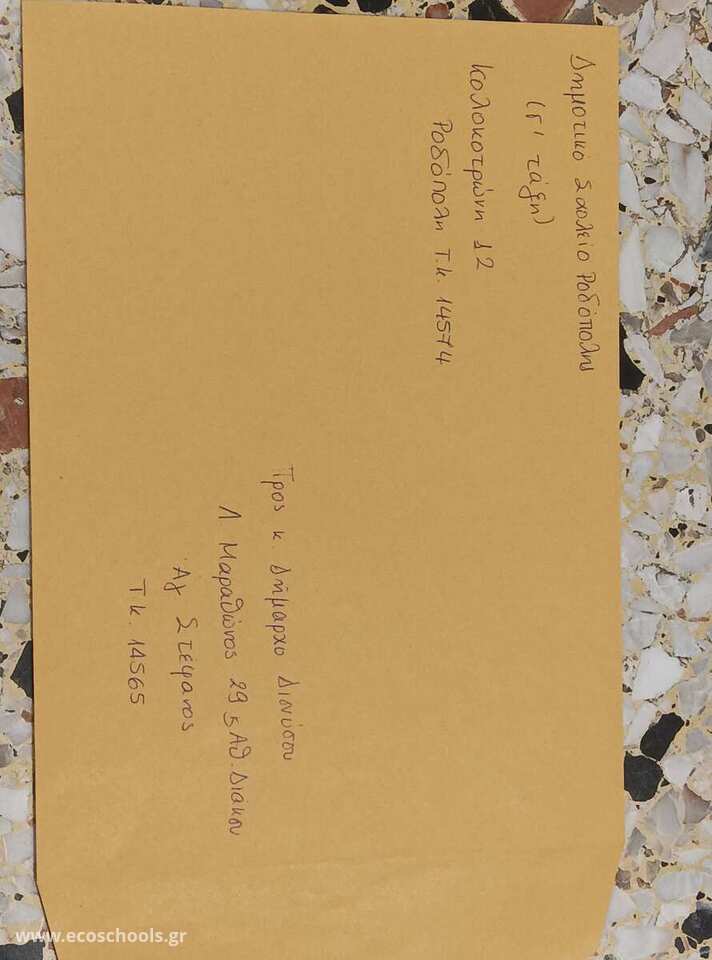 Δημοτικό Σχολείο Ροδόπολης
(Γ' τάξη)
Κολοκοτρώνη 12
Ροδόπολη Τ.Κ. 14574
Προς κ. Δήμαρχο Διονύσου
Λ Μαραθώνος 29 & Αθ. Διάκου
Αγ Στέφανος
Τ.Κ. 14565
www.ecoschools.gr